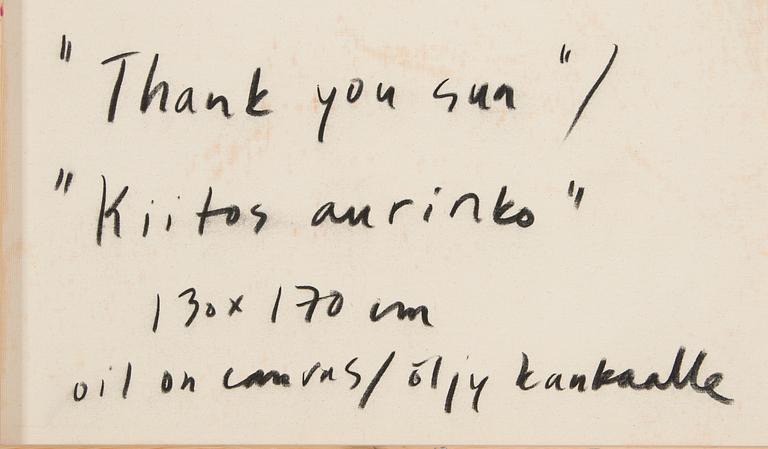 "Thank you sun"/
"Kiitos aurinko"
130x170 cm
oil on canvas/öljy kankaalle